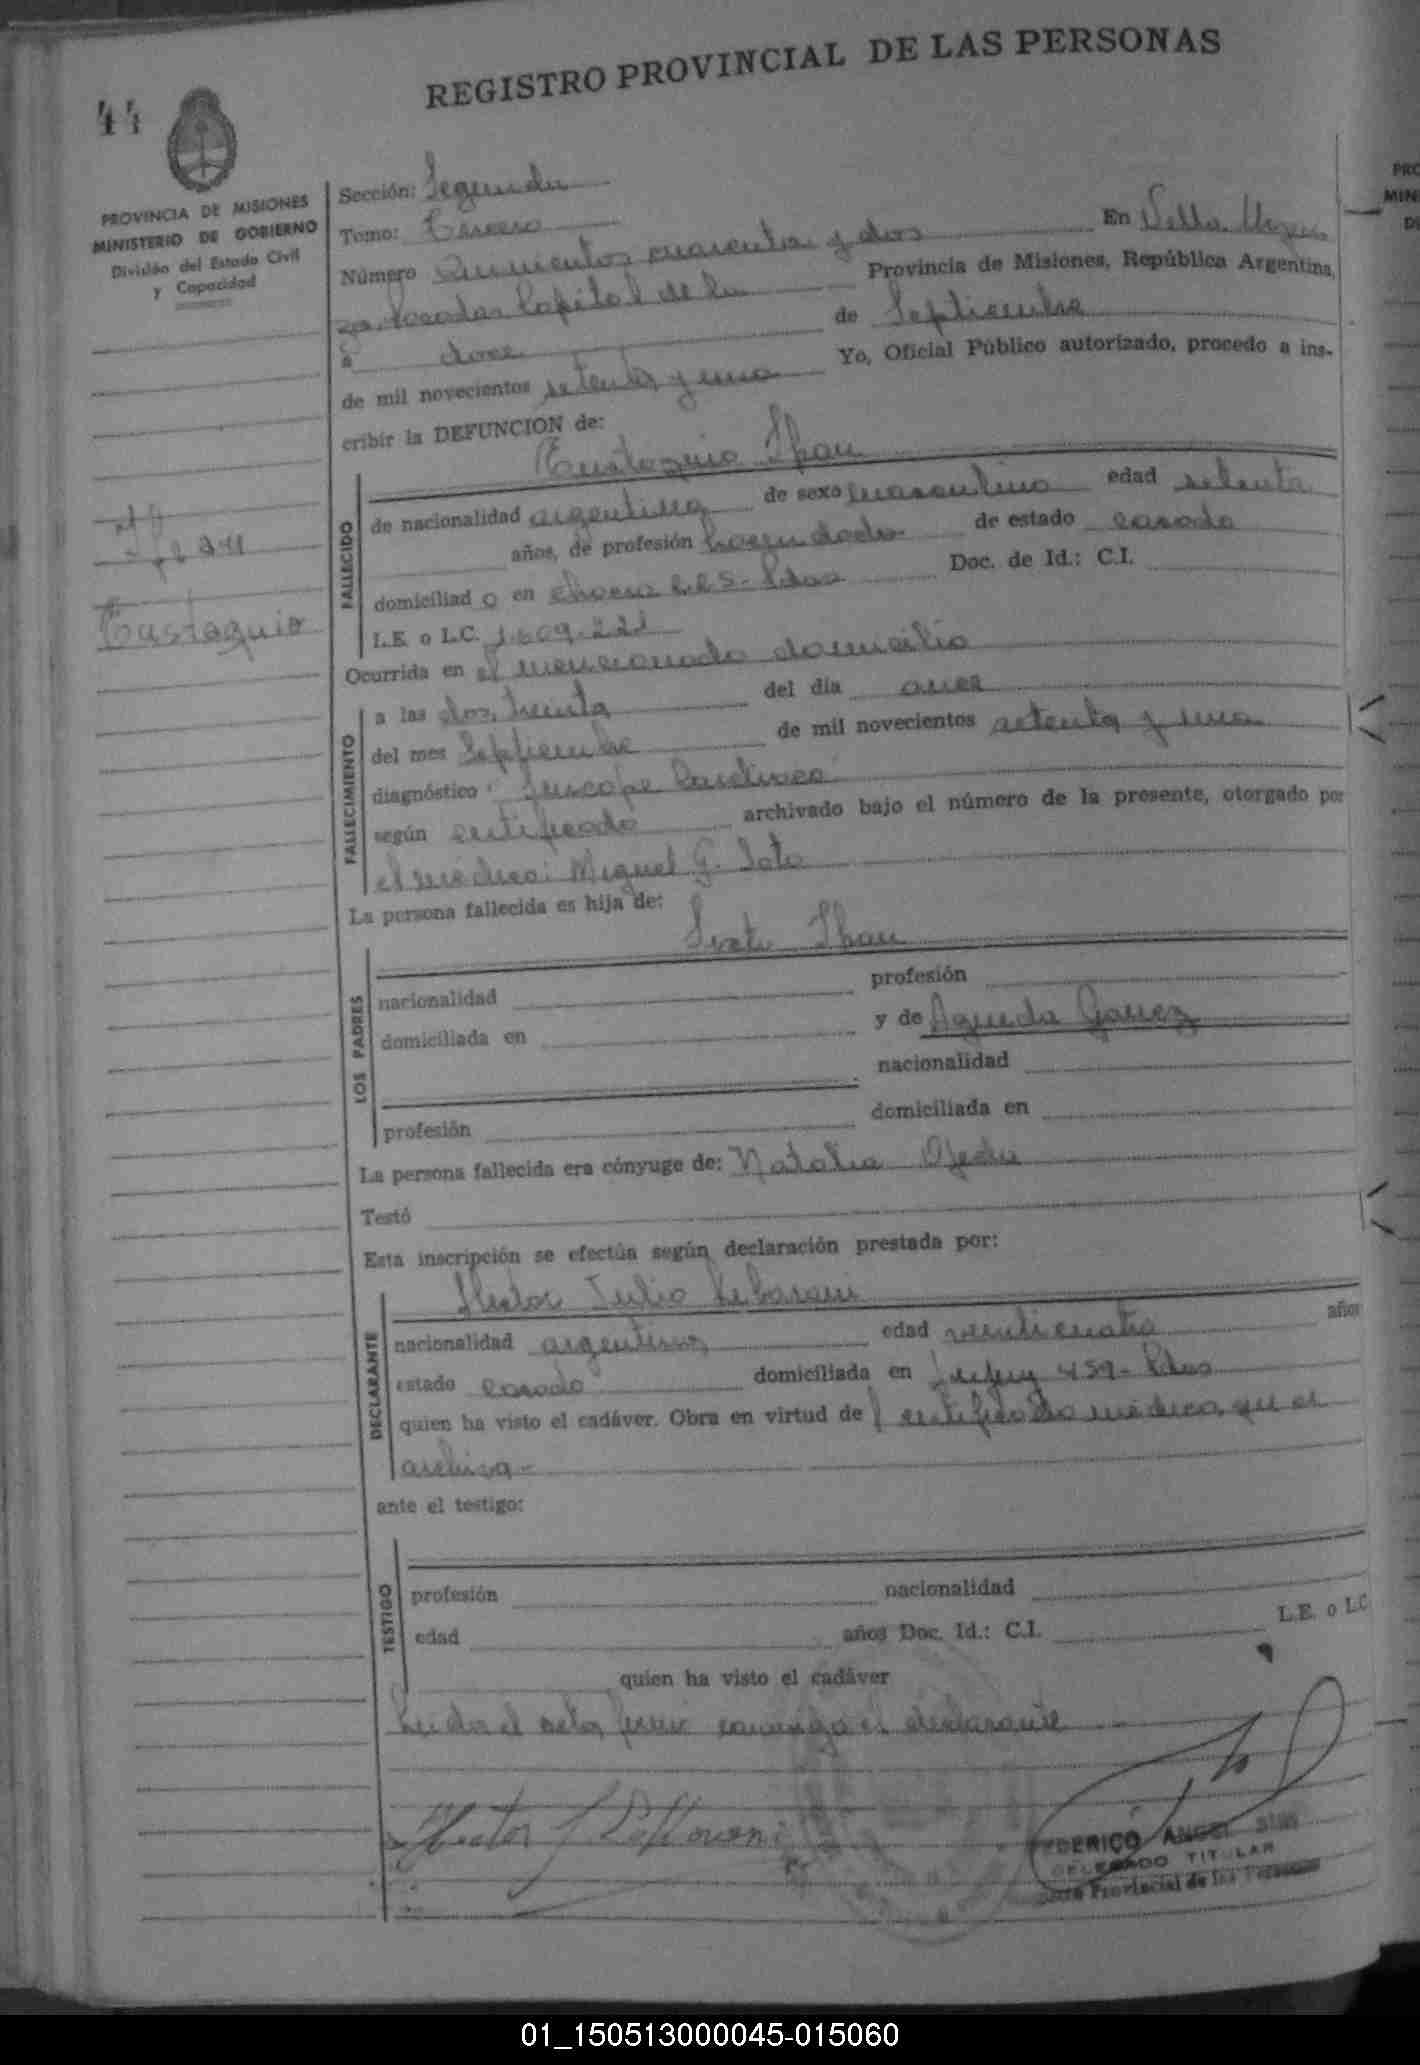 REGISTRO PROVINCIAL DE LAS PERSONAS
44
PROVINCIA DE MISIONES
MINISTERIO DE GOBIERNO
División del Estado Civil
y Capacidad
Sección: Segunda
Tomo: Tercero
Número Quinientos cuarenta y dos En Villa Urqui
za, Posadas Capital de la Provincia de Misiones, República Argentina,
a doce de Septiembre
de mil novecientos setenta y uno Yo, Oficial Público autorizado, procedo a ins-
cribir la DEFUNCION de:
Eustaquio
Eustaquio
FALLECIDO
de nacionalidad argentina de sexo masculino edad setenta
años, de profesión hacendado de estado casado
domiciliad o en Chacra Pdas Doc. de Id.: C.I.
L.E o L.C. 1.609.221
Ocurrida en el mencionado domicilio
FALLECIMIENTO
a las dos, treinta del día once
del mes Septiembre de mil novecientos setenta y uno
diagnóstico: Síncope Cardíaco
según certificado archivado bajo el número de la presente, otorgado por
el médico: Miguel G. Soto
La persona fallecida es hija de:
LOS PADRES
nacionalidad profesión
domiciliada en y de Agueda
nacionalidad
profesión domiciliada en
La persona fallecida era cónyuge de: Natalia Ojeda
Testó
Esta inscripción se efectúa según declaración prestada por:
Hector Julio
DECLARANTE
nacionalidad argentino edad veinticuatro años
estado casado domiciliada en Jujuy 459- Pdas
quien ha visto el cadáver. Obra en virtud de certificado médico, que se
archiva-
ante el testigo:
TESTIGO
profesión nacionalidad
edad años Doc. Id.: C.I. L.E. o L.C
quien ha visto el cadáver
Leída el acta, firma conmigo el declarante
Hector J
FEDERICO ANGEL
DELEGADO TITULAR
Provincial de las Personas
01_150513000045-015060